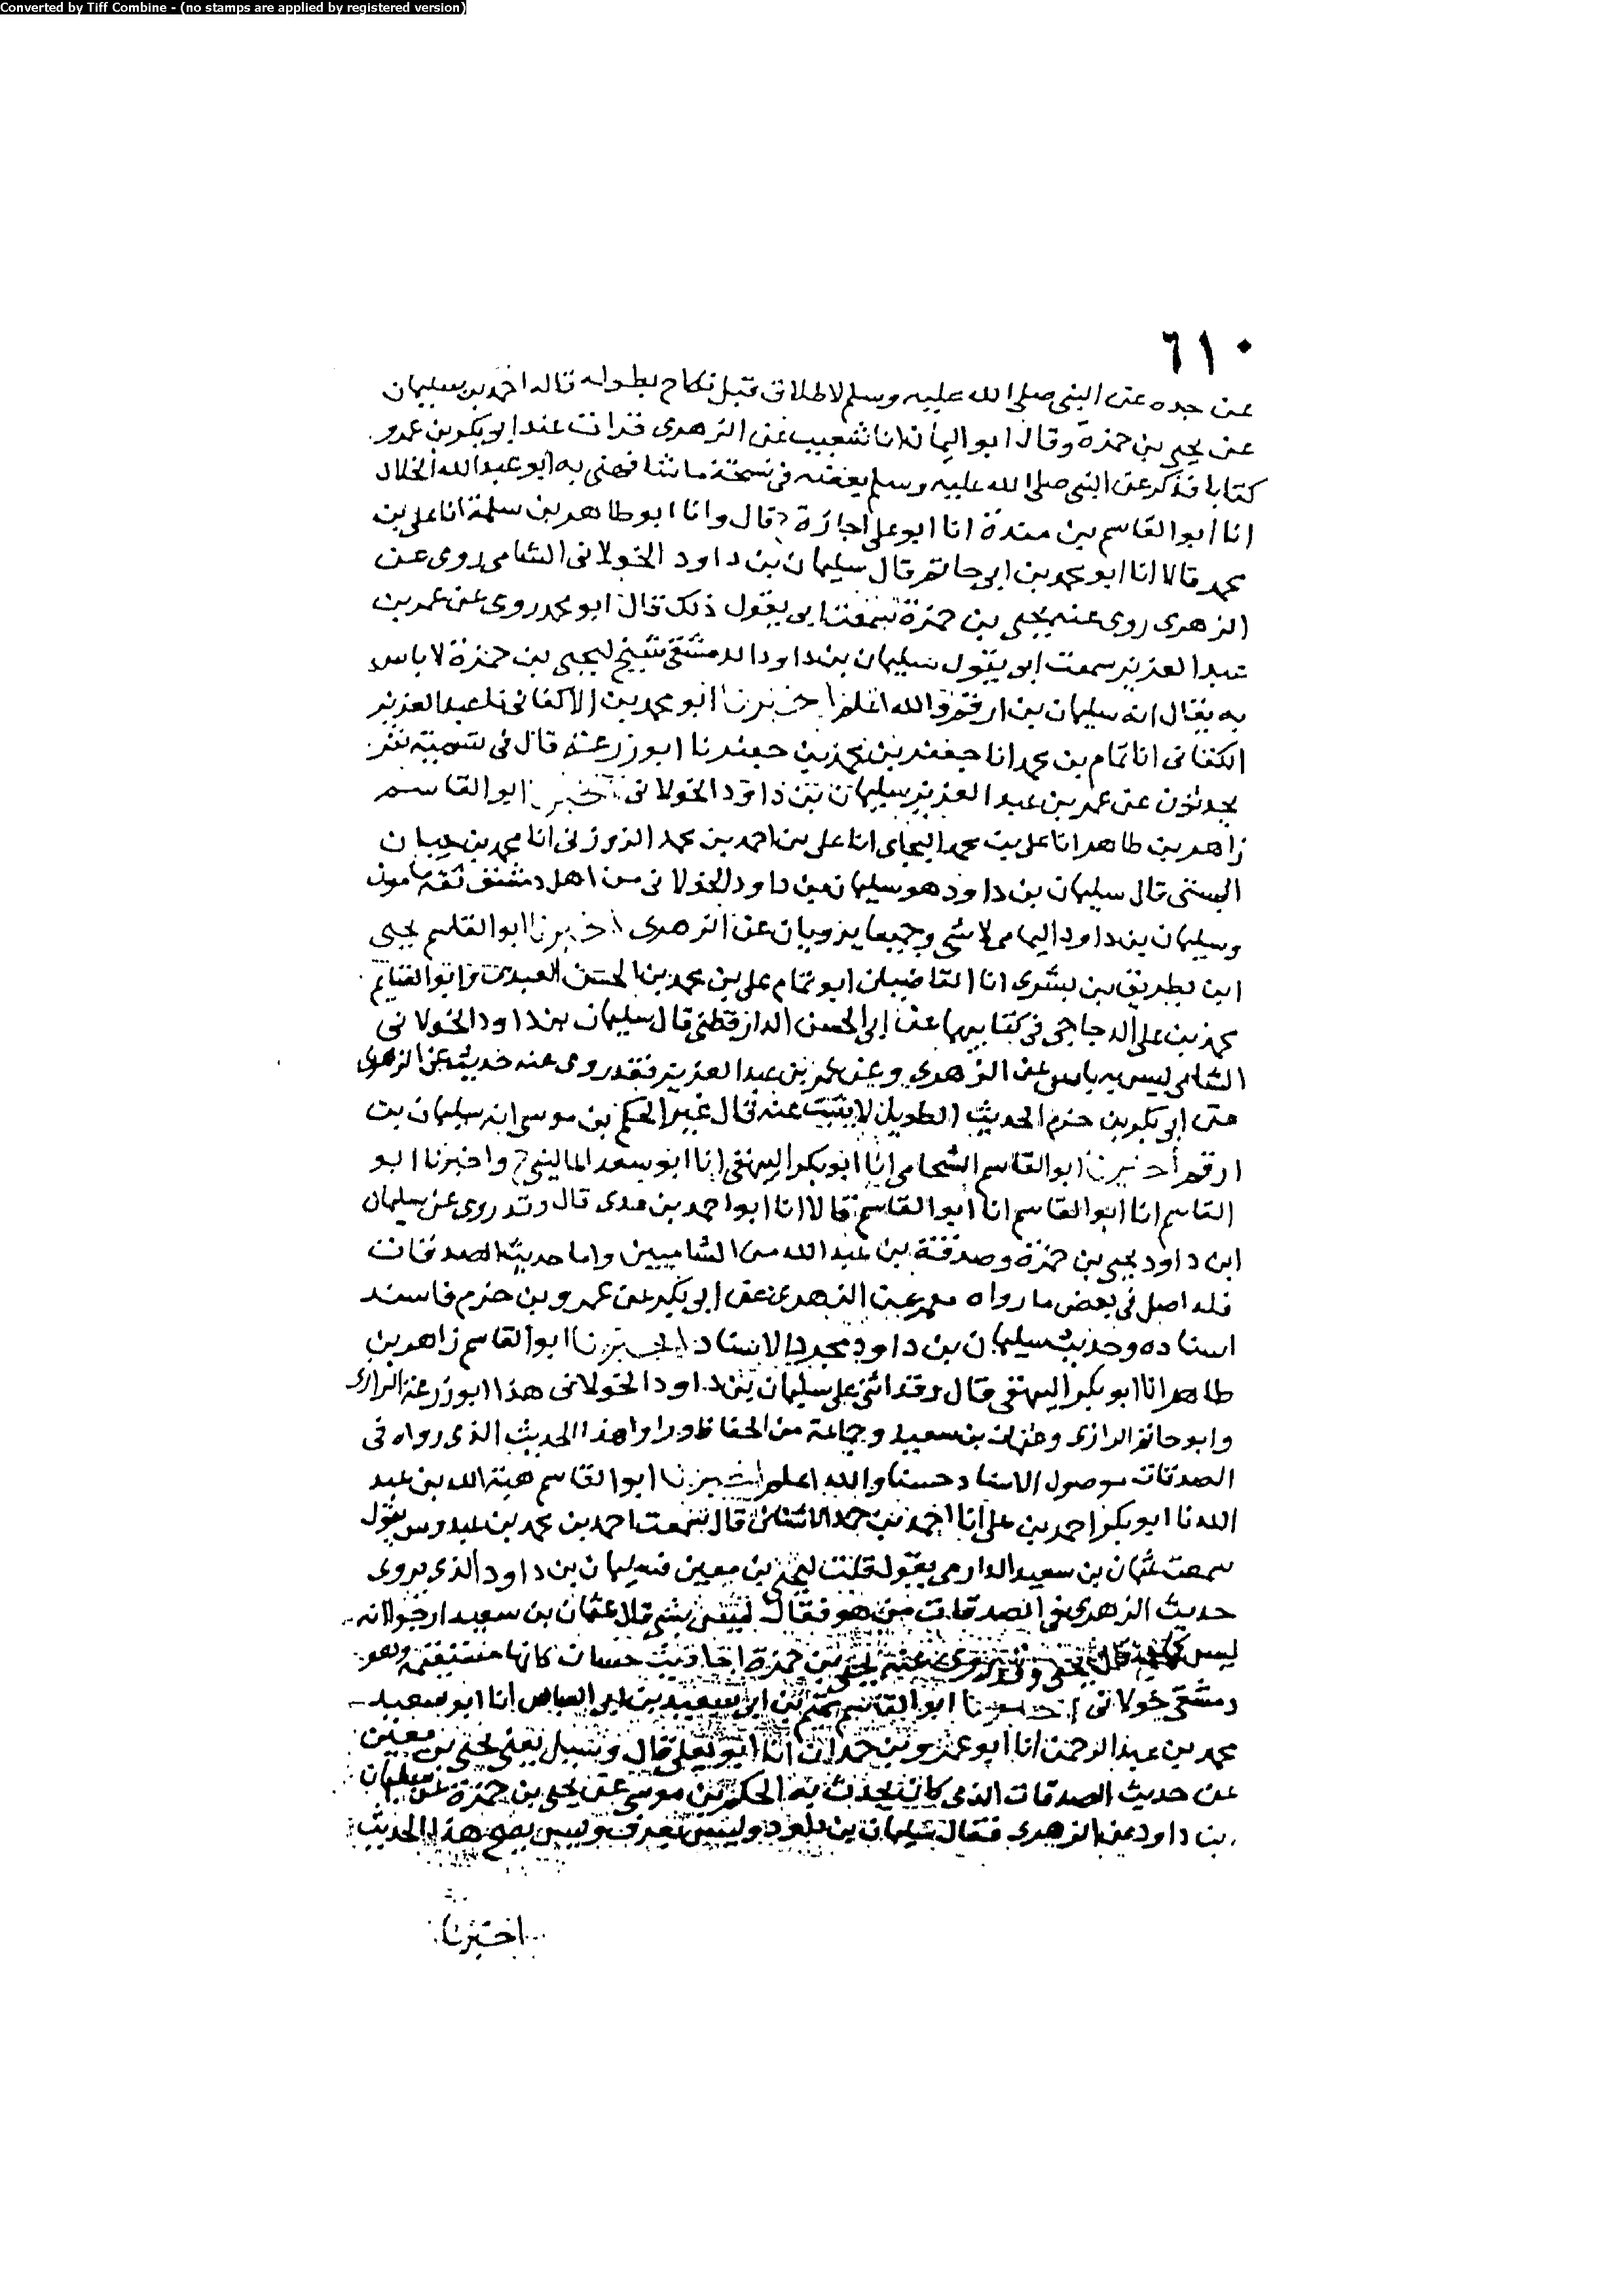 Converted by Tiff Combine - (no stamps are applied by registered version)
٦١٠
عن جده عن النبي صلى الله عليه وسلم لا طلاق قبل نكاح بطوله قاله احمد بن سليمان
عن يحيى بن حمزة وقال ابو اليمان انا شعيب عن الزهري قرات عند ابو بكر بن عمرو
كتابا فذكر عن النبي صلى الله عليه وسلم بعضه في نسخة ما شافهني به ابو عبد الله الخلال
انا ابو القاسم بن مندة انا ابو علي اجازة ح قال وانا ابو طاهر بن سلمة انا علي بن
محمد قالا انا ابو محمد بن ابي حاتم قال سليمان بن داود الخولاني الشامي روى عن
الزهري روى عنه يحيى بن حمزة سمعت ابي يقول ذلك قال ابو محمد روى عن عمر بن
عبد العزيز سمعت ابي يقول سليمان بن داود الدمشقي شيخ ليحيى بن حمزة لا باس
به يقال انه سليمان بن ارقم والله اعلم اخبرنا ابو محمد بن الاكفاني نا عبد العزيز
الكتاني انا تمام بن محمد انا جعفر بن محمد بن جعفر نا ابو زرعة قال في تسمية نفر
يحدثون عن عمر بن عبد العزيز سليمان بن داود الخولاني اخبرنا ابو القاسم
زاهر بن طاهر انا علي بن محمد البحاثي انا علي بن احمد بن محمد الزوزني انا محمد بن حبان
البستي قال سليمان بن داود هو سليمان بن داود الخولاني من اهل دمشق ثقة مامون
وسليمان بن داود اليمامي لا شي وجميعا يرويان عن الزهري اخبرنا ابو القاسم يحيى
ابن بطريق بن بشرى انا القاضيان ابو تمام علي بن محمد بن الحسن العبدي وابو الغنايم
محمد بن علي الدجاجي في كتابيهما عن ابي الحسن الدارقطني قال سليمان بن داود الخولاني
الشامي ليس به باس عن الزهري وعن عمر بن عبد العزيز فقد روى عنه حديثه عن الزهري
عن ابي بكر بن حزم الحديث الطويل لا يثبت عنه قال غير الحكم بن موسى انه سليمان بن
ارقم اخبرنا ابو القاسم الشحامي انا ابو بكر البيهقي انا ابو سعد الماليني ح واخبرنا ابو
القاسم انا ابو القاسم انا ابو القاسم قالا انا ابو احمد بن عدي قال وقد روى عن سليمان
ابن داود يحيى بن حمزة وصدقة بن عبد الله من الشاميين واما حديث الصدقات
فله اصل في بعض ما رواه معمر عن الزهري عن ابي بكر عن عمرو بن حزم فاسند
اسناده وحديث سليمان بن داود مجرد الاسناد اخبرنا ابو القاسم زاهر بن
طاهر انا ابو بكر البيهقي قال وقد اثنى على سليمان بن داود الخولاني هذا ابو زرعة الرازي
وابو حاتم الرازي وعثمان بن سعيد وجماعة من الحفاظ وراوا هذا الحديث الذي رواه في
الصدقات موصول الاسناد حسنا والله اعلم اخبرنا ابو القاسم هبة الله بن عبد
الله نا ابو بكر احمد بن علي انا احمد بن محمد الاشناني قال سمعت احمد بن محمد بن عبدوس يقول
سمعت عثمان بن سعيد الدارمي يقول قلت ليحيى بن معين فسليمان بن داود الذي يروى
حديث الزهري في الصدقات من هو فقال ليس بشي قال عثمان بن سعيد ارجو انه
ليس كما قال يحيى وقد روى عنه يحيى بن حمزة احاديث حسان كانها مستقيمة وهو
دمشقي خولاني اخبرنا ابو القاسم تميم بن ابي سعيد بن ابي العباس انا ابو سعيد
محمد بن عبد الرحمن انا ابو عمرو بن حمدان انا ابو يعلى قال وسيل يعني يحيى بن معين
عن حديث الصدقات الذي كان يحدث به الحكم بن موسى عن يحيى بن حمزة عن سليمان
بن داود عن الزهري فقال سليمان بن داود وليس يعرف وليس يصح هذا الحديث
اخبرنا